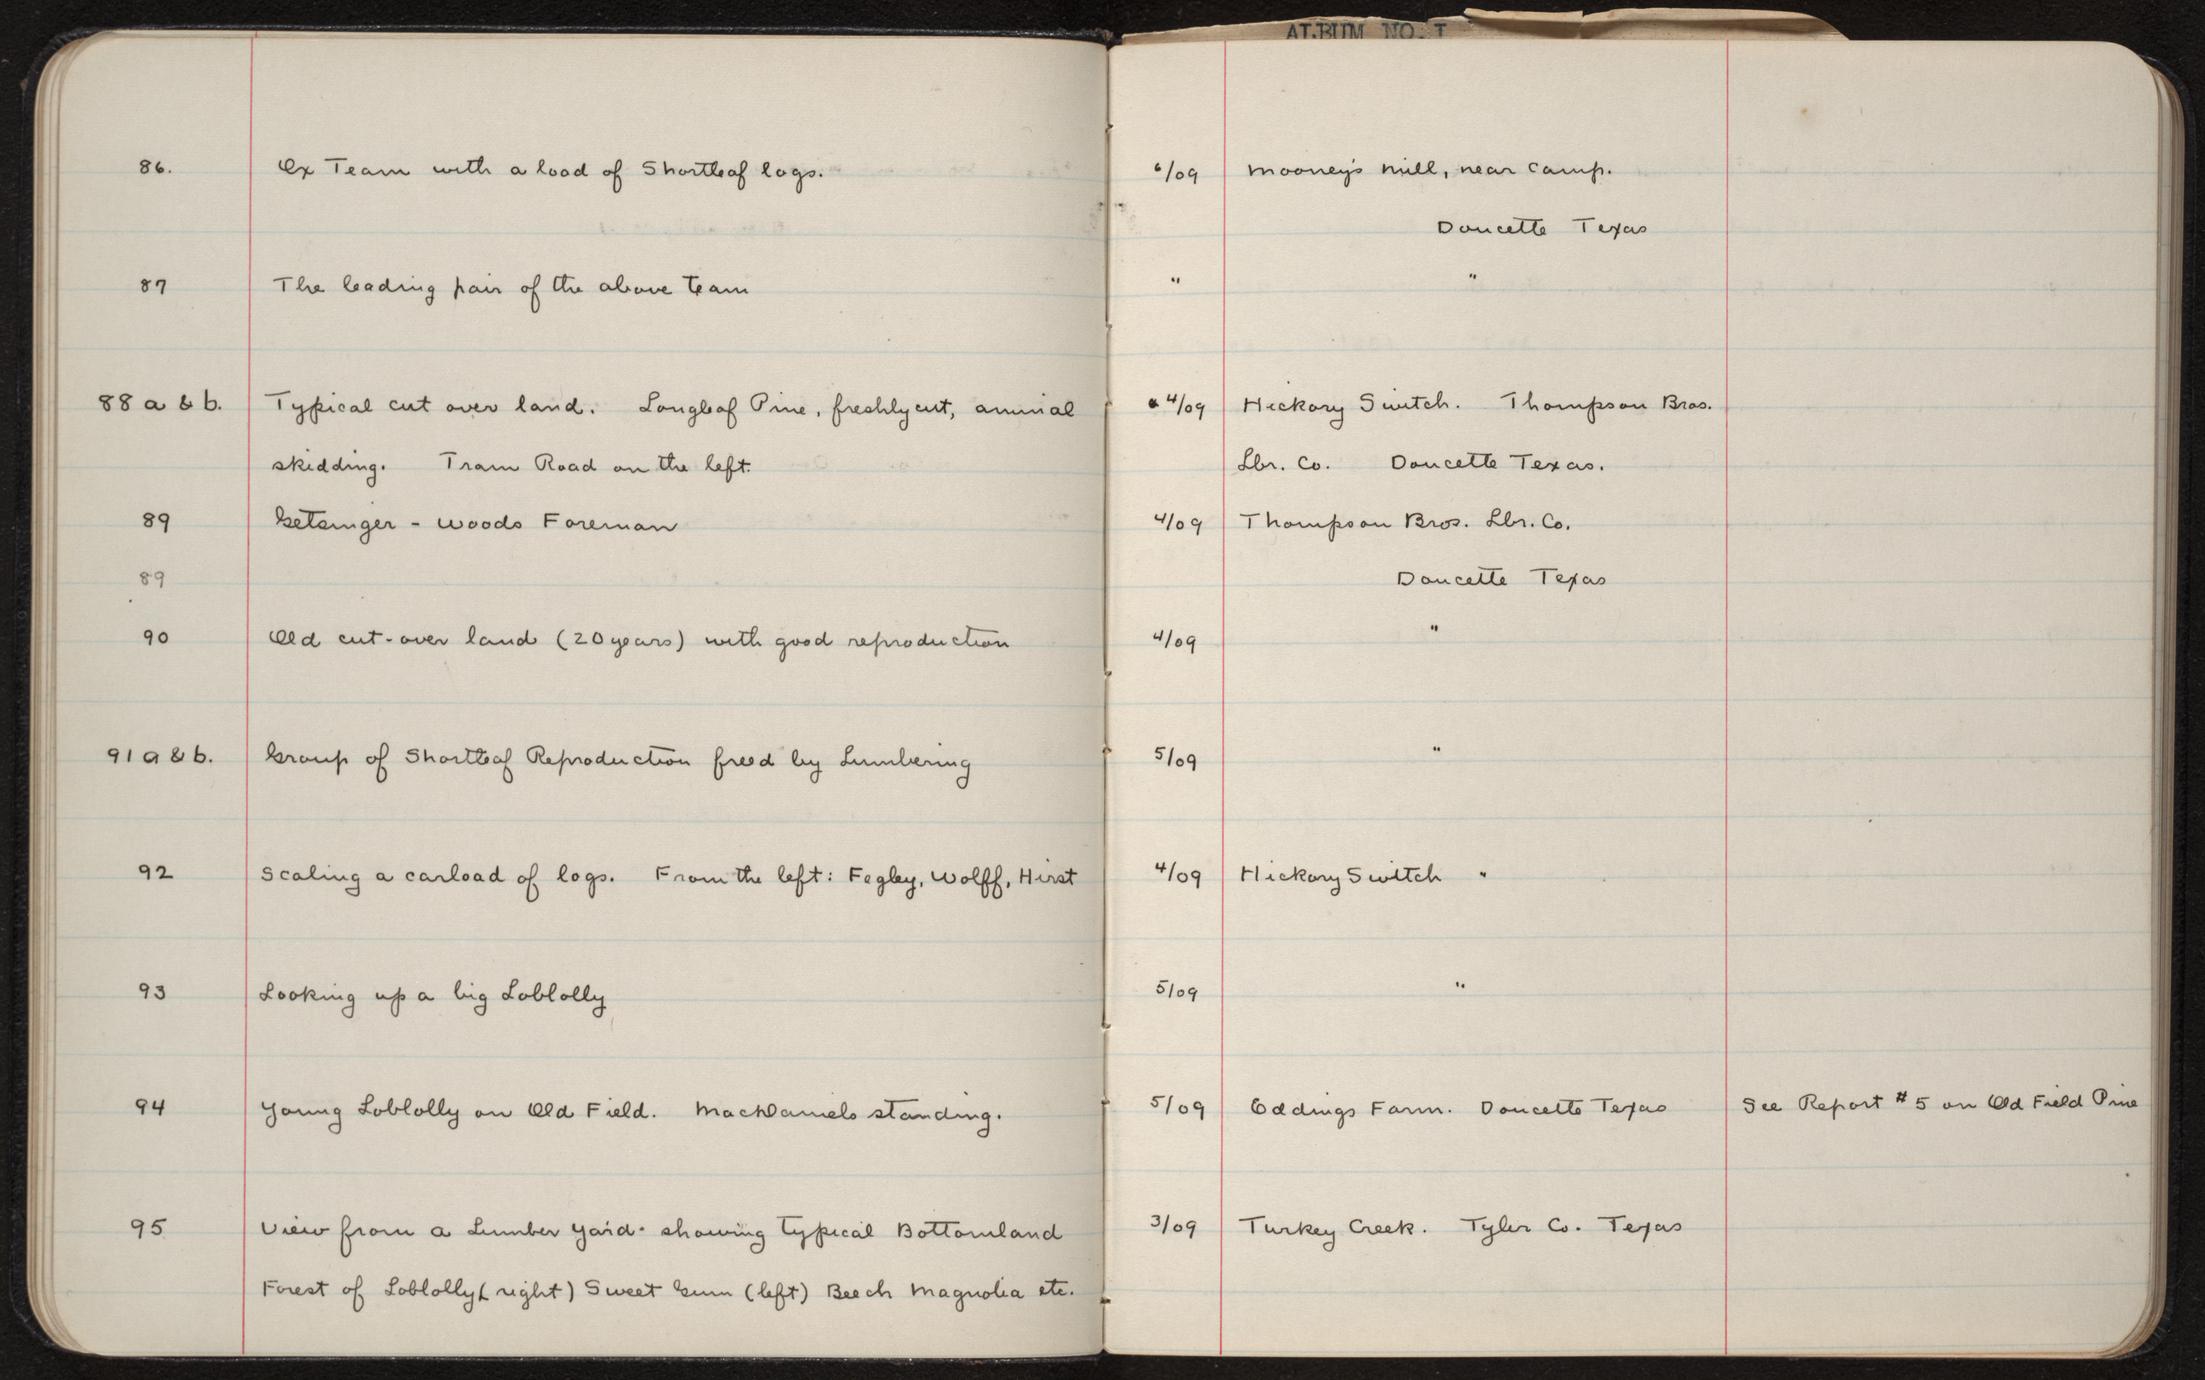 ALBUM NO. I
86. Ox Team with a load of Shortleaf logs. 6/09 Mooney's mill, near camp.
Doucette Texas
87 The leading pair of the above team " "
88 a & b. Typical cut over land. Longleaf Pine, freshly cut, animal 4/09 Hickory Switch. Thompson Bros.
skidding. Tram Road on the left. Lbr. Co. Doucette Texas.
89 Getsinger - Woods Foreman 4/09 Thompson Bros. Lbr. Co.
89 Doucette Texas
90 Old cut-over land (20 years) with good reproduction 4/09 "
91 a & b. Group of Shortleaf Reproduction freed by Lumbering 5/09 "
92 Scaling a carload of logs. From the left: Fegley, Wolff, Hirst 4/09 Hickory Switch "
93 Looking up a big Loblolly 5/09 "
94 Young Loblolly on Old Field. MacDaniels standing. 5/09 Eddings Farm. Doucette Texas See Report #5 on Old Field Pine
95 View from a Lumber Yard - showing typical Bottomland 3/09 Turkey Creek. Tyler Co. Texas
Forest of Loblolly (right) Sweet Gum (left) Beech Magnolia etc.